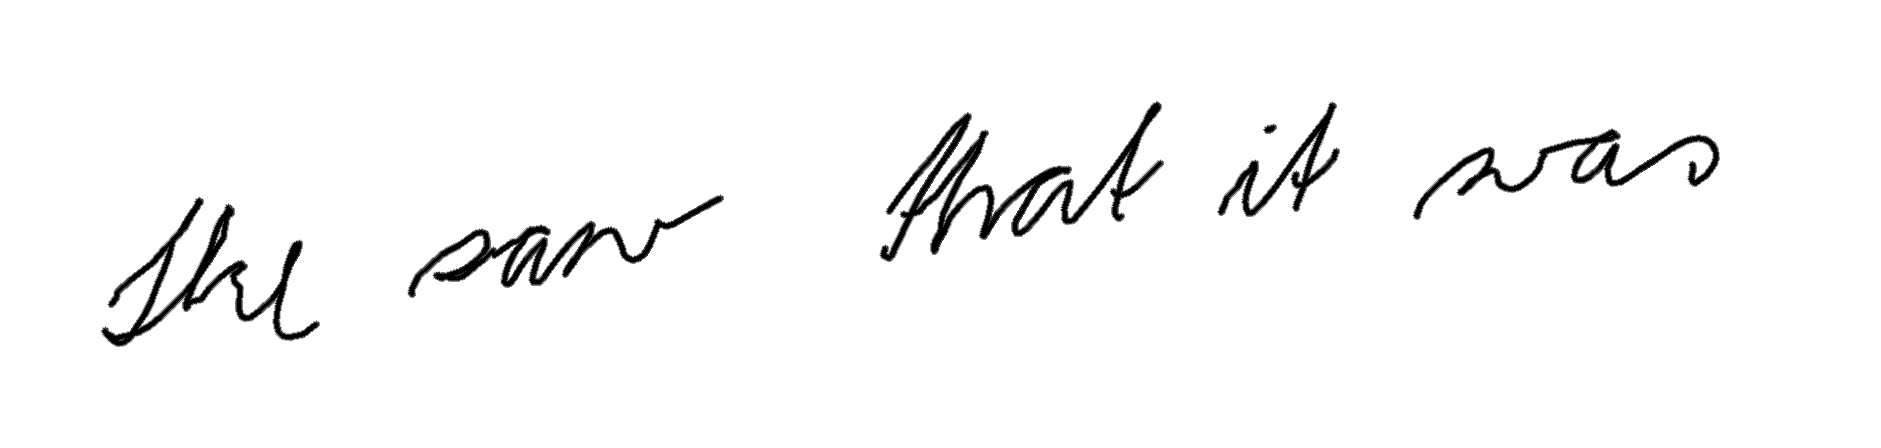 She saw that it was